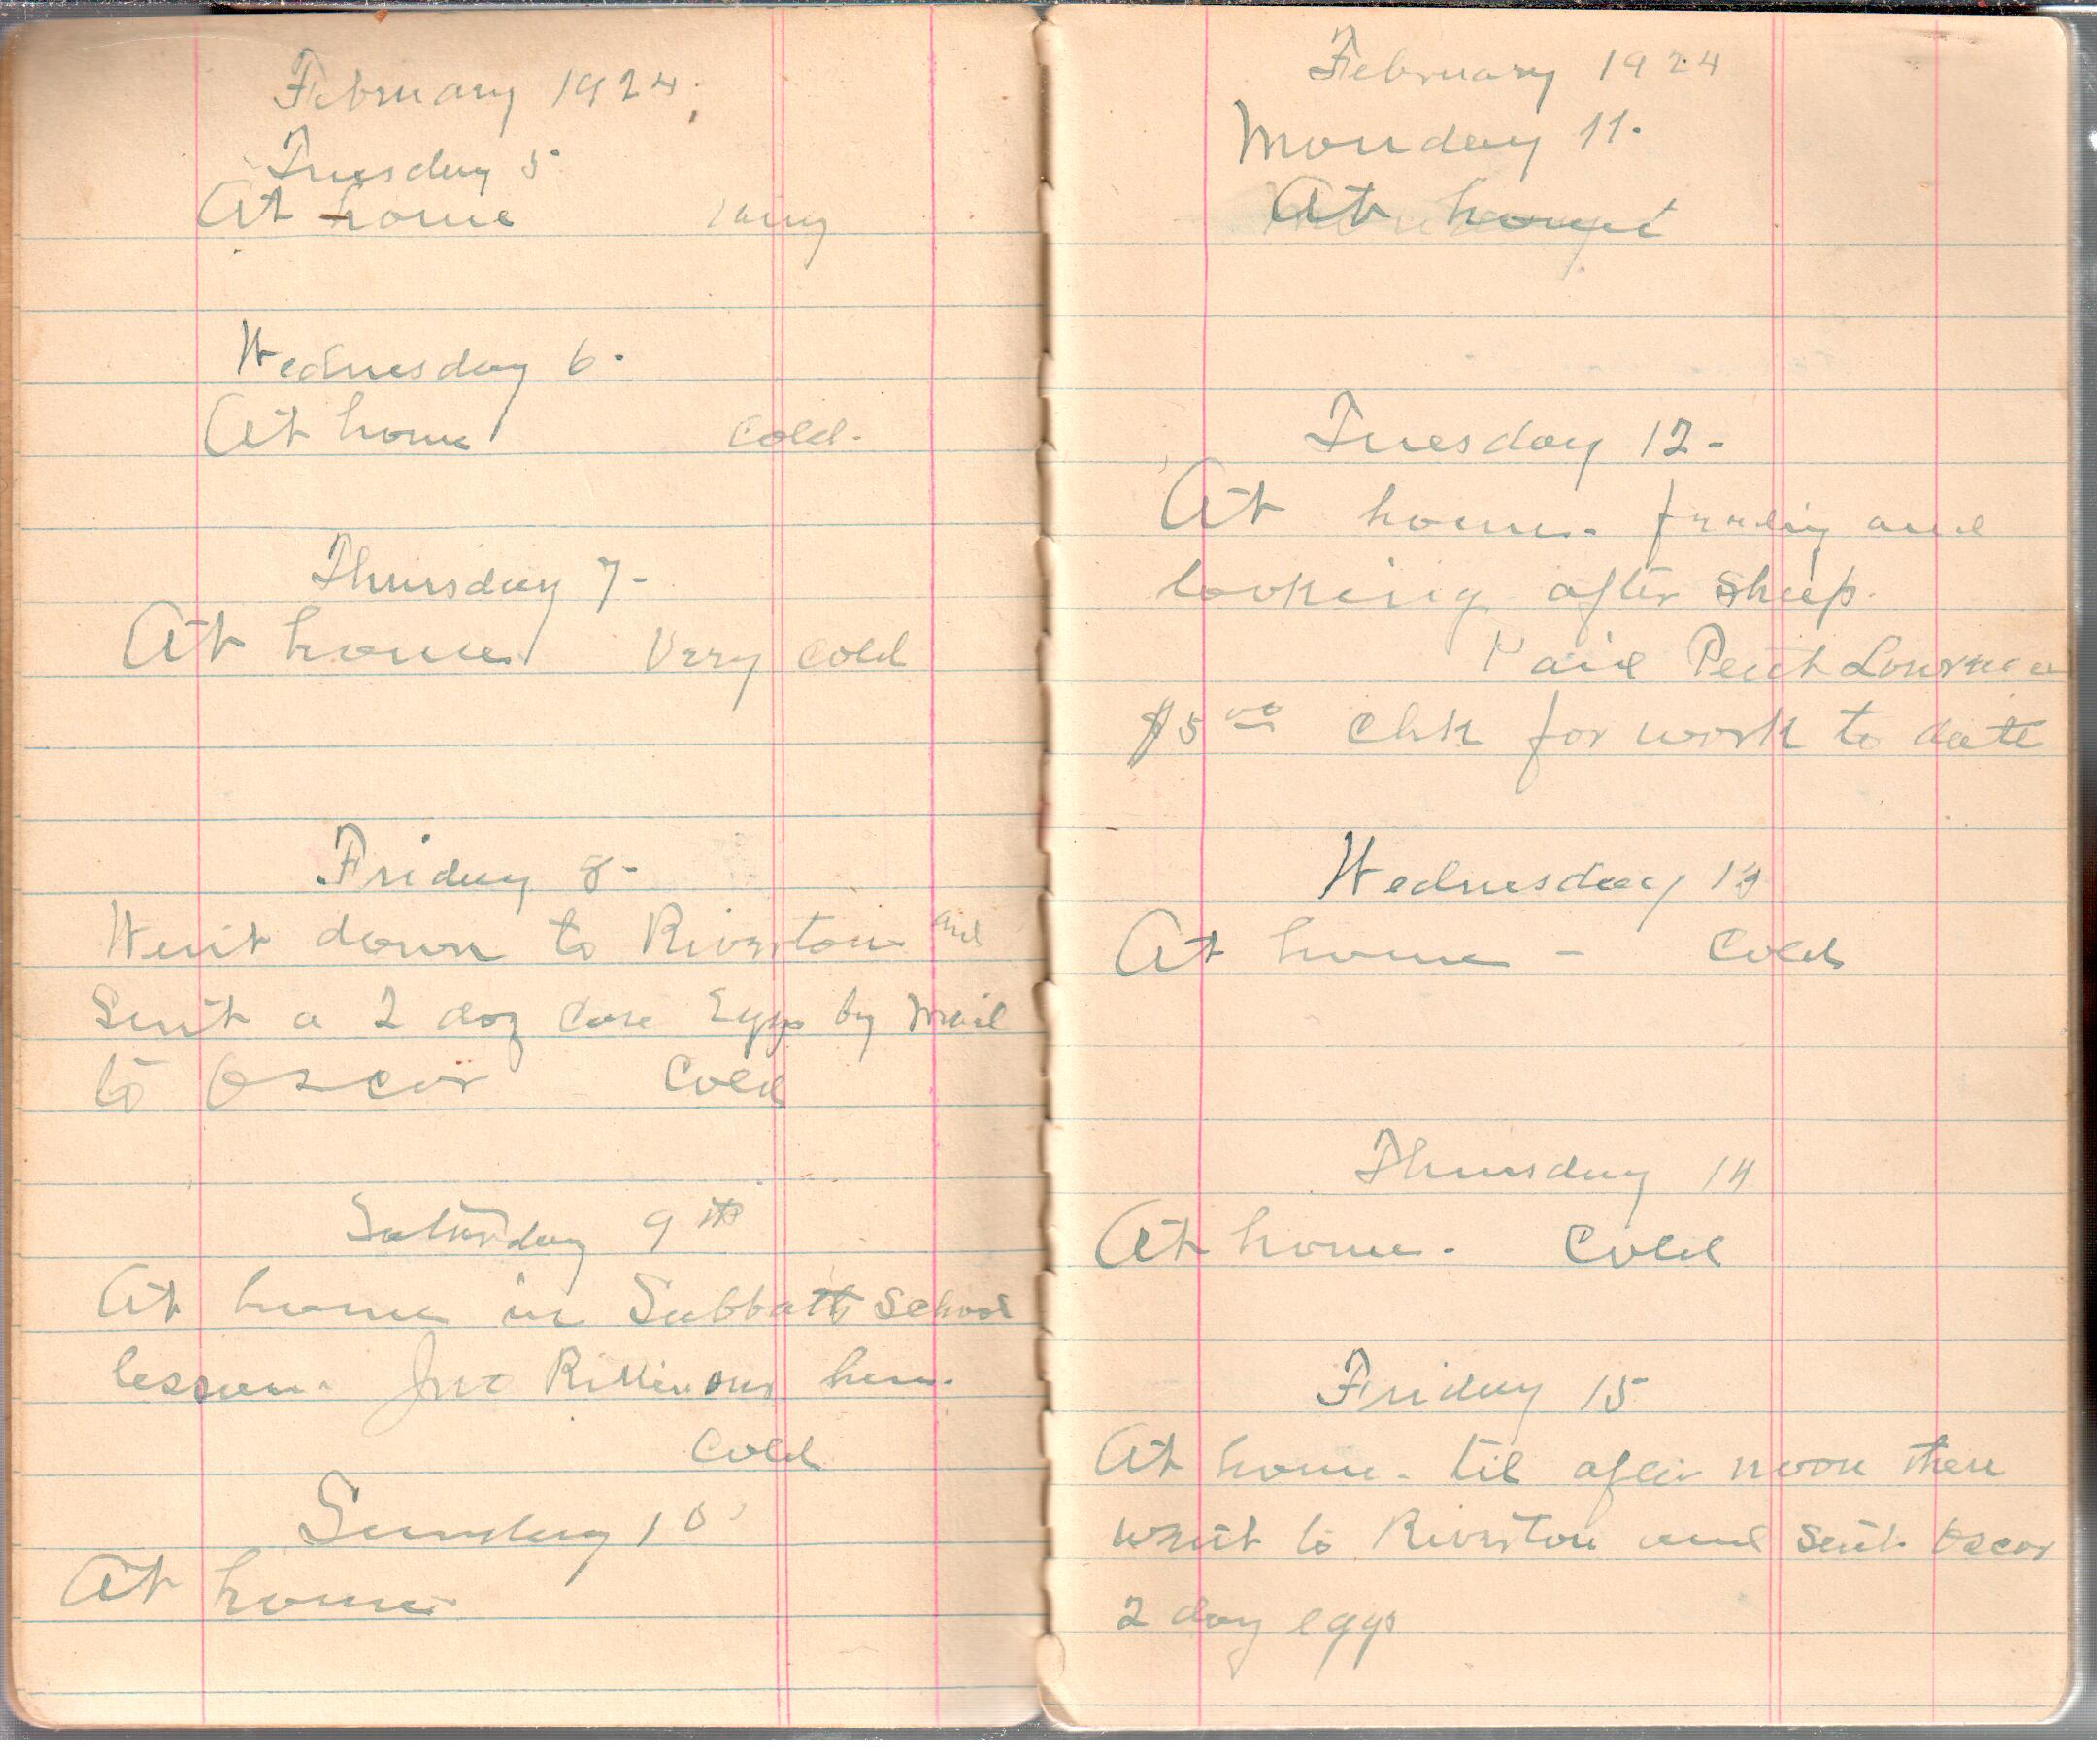 February 1924.
Tuesday 5.
At home
Wednesday 6.
At home cold.
Thursday 7-
At home Very cold
Friday 8-
Went down to Riverton and
Sent a 2 doz Case Eggs by mail
to Oscar Cold
Saturday 9th
At home in Sabbath School
lesson. Jno here.
Cold
Sunday 10
At home
February 1924
Monday 11.
At home
Tuesday 12-
At home. feeding and
looking after Sheep.
Paid
$5 00 Chk for work to date
Wednesday 13
At home - Cold
Thursday 14
At home. Cold
Friday 15
At home. til after noon then
went to Riverton and sent Oscar
2 doz eggs